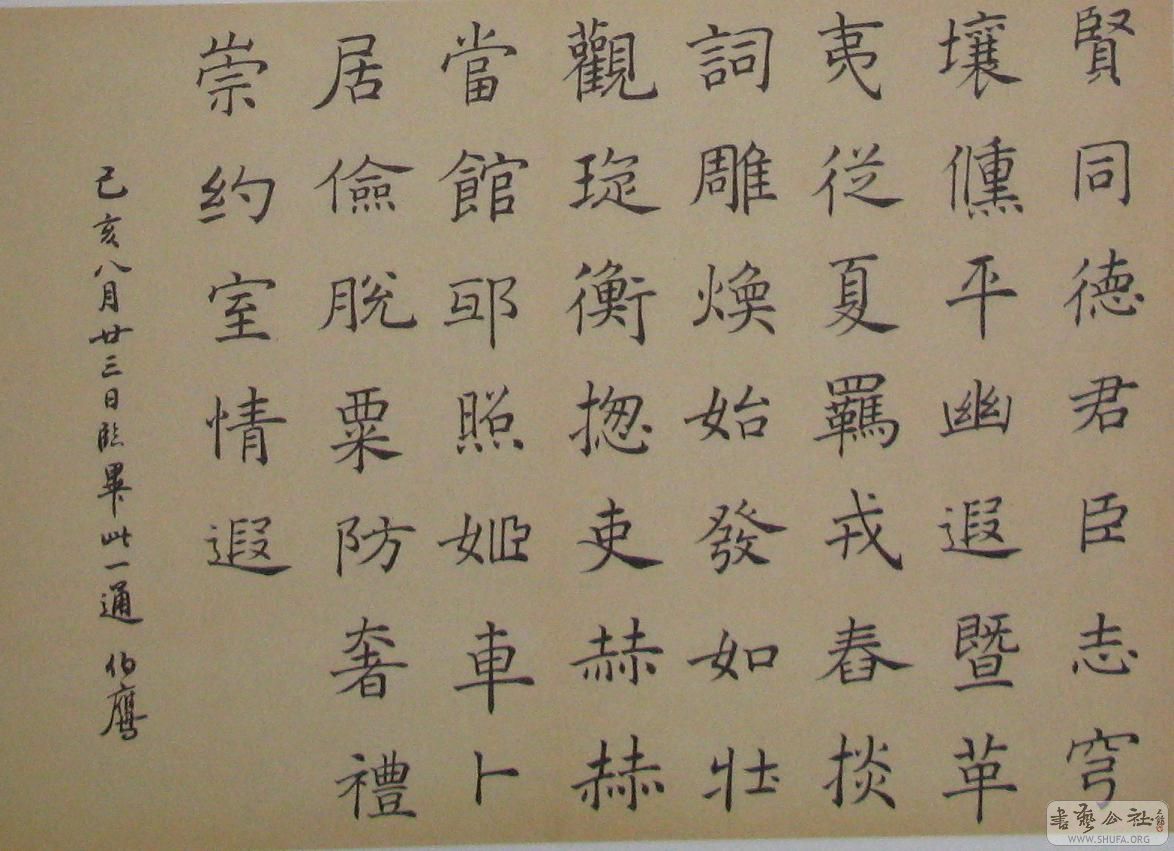 賢同德君臣志穹
壤儔平幽遐暨革
夷從夏羈戎舂掞
詞雕煥始發如壯
觀琁衡揔吏赫赫
當館邷照姬車卜
居儉脫粟防奢禮
崇約室情遐
己亥八月廿三日臨畢此一通 伯鷹
書藝公社
WWW.SHUFA.ORG